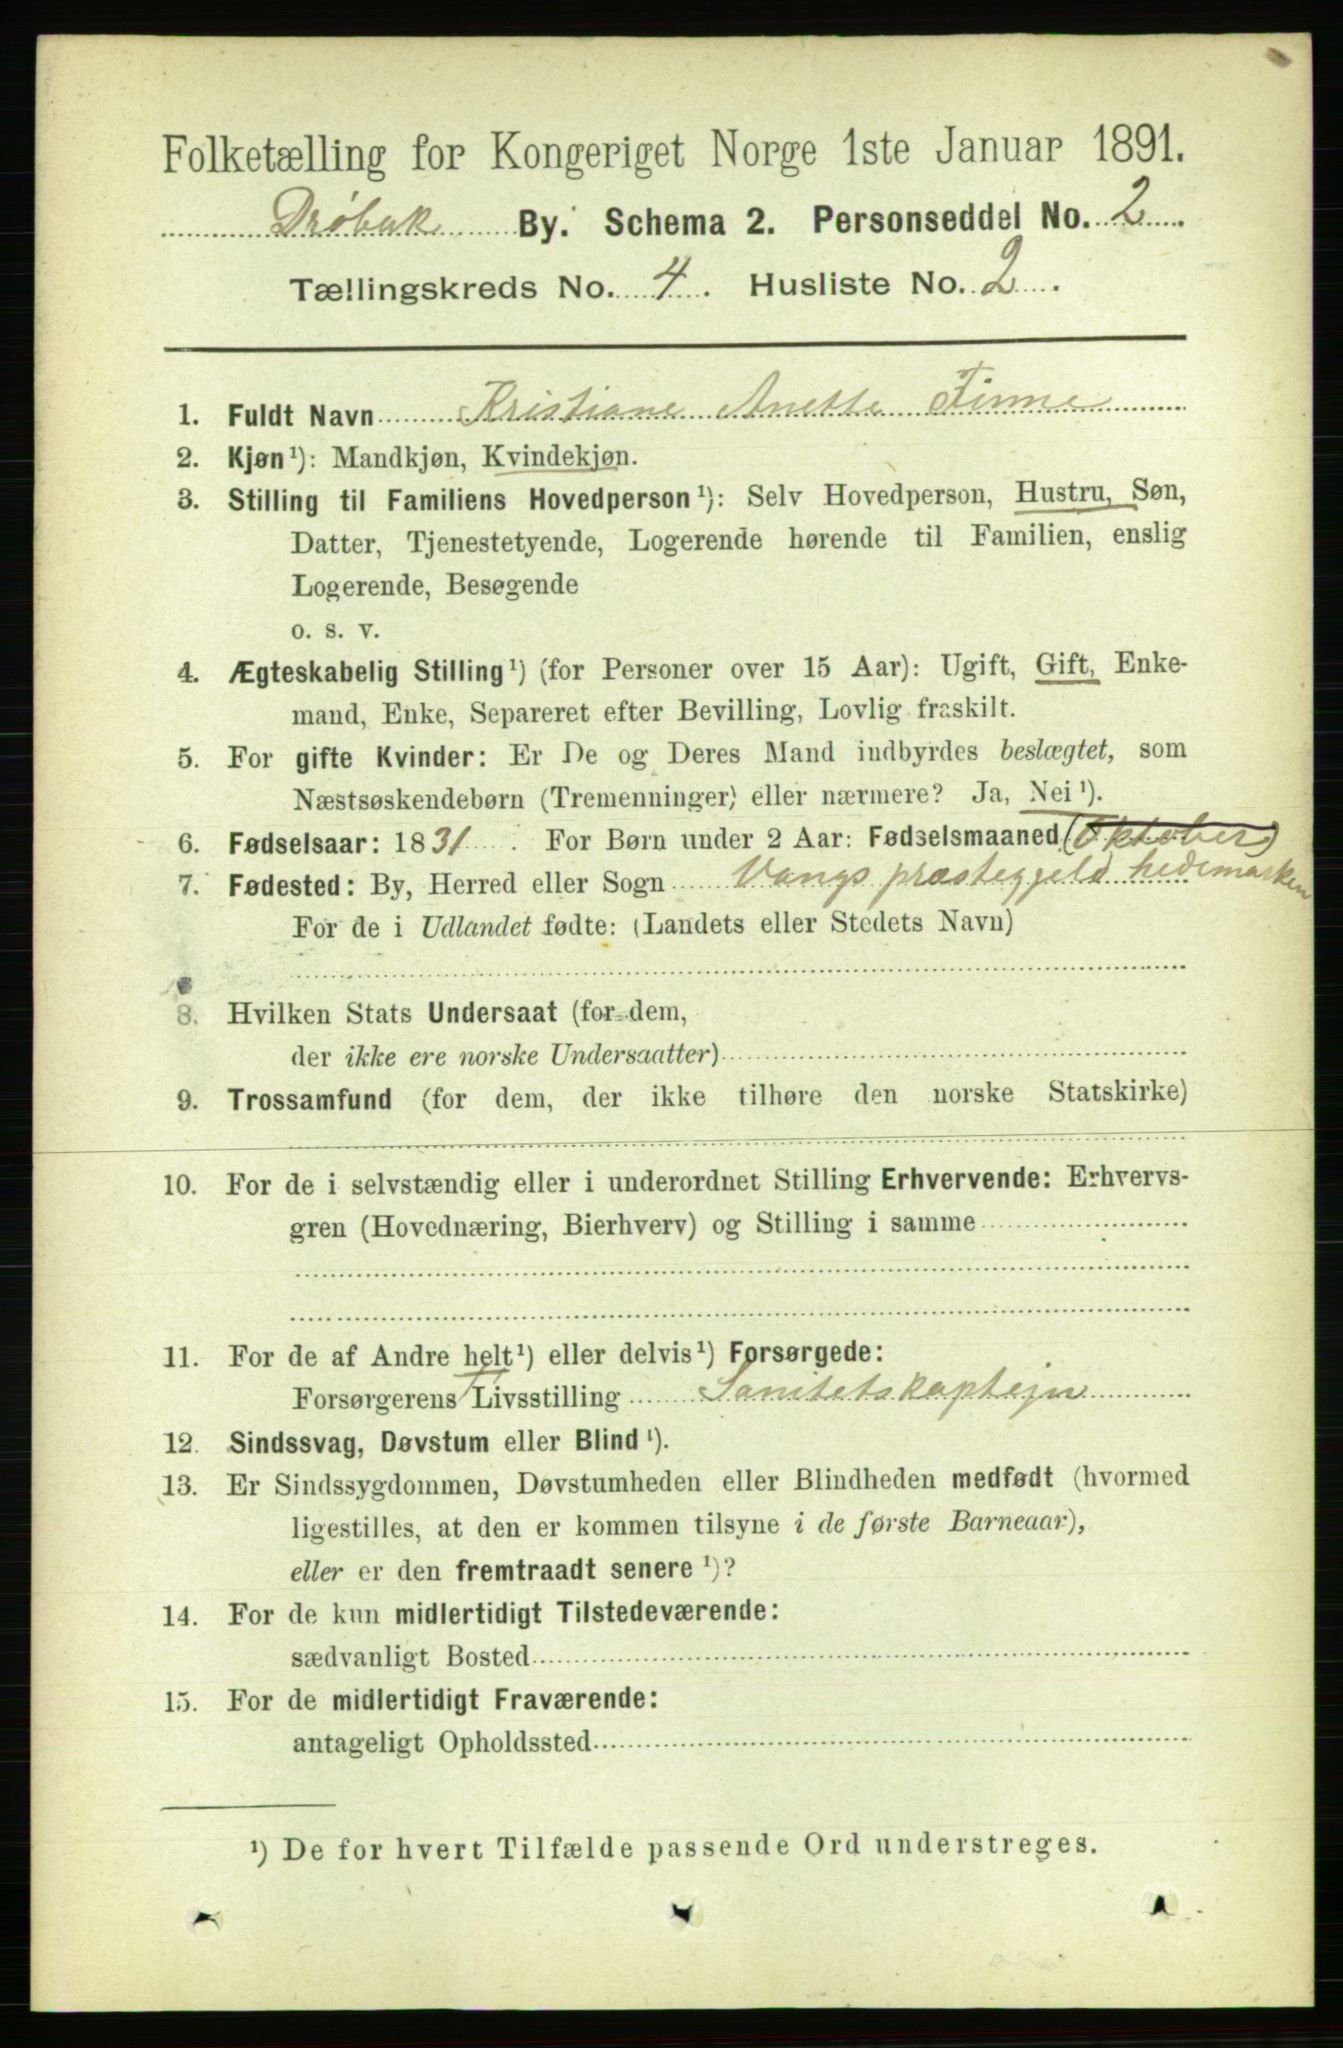 Folketælling for Kongeriget Norge 1ste Januar 1891.
Drøbak By. Schema 2. Personseddel No. 2
Tællingskreds No. 4. Husliste No. 2.
1. Fuldt Navn Kristiane Anette Finne
2. Kjøn¹): Mandkjøn, Kvindekjøn.
3. Stilling til Familiens Hovedperson¹): Selv Hovedperson, Hustru, Søn,
Datter, Tjenestetyende, Logerende hørende til Familien, enslig
Logerende, Besøgende
o. s. v.
4. Ægteskabelig Stilling¹) (for Personer over 15 Aar): Ugift, Gift, Enke-
mand, Enke, Separeret efter Bevilling, Lovlig fraskilt.
5. For gifte Kvinder: Er De og Deres Mand indbyrdes beslægtet, som
Næstsøskendebørn (Tremenninger) eller nærmere? Ja, Nei¹).
6. Fødselsaar: 1831. For Børn under 2 Aar: Fødselsmaaned (Oktober)
7. Fødested: By, Herred eller Sogn Vangs præsteggeld hedemarken
For de i Udlandet fødte: (Landets eller Stedets Navn)
8. Hvilken Stats Undersaat (for dem,
der ikke ere norske Undersaatter)
9. Trossamfund (for dem, der ikke tilhøre den norske Statskirke)
10. For de i selvstændig eller i underordnet Stilling Erhvervende: Erhvervs-
gren (Hovednæring, Bierhverv) og Stilling i samme
11. For de af Andre helt¹) eller delvis¹) Forsørgede:
Forsørgerens Livsstilling Sanitetskaptejn
12. Sindssvag, Døvstum eller Blind¹).
13. Er Sindssygdommen, Døvstumheden eller Blindheden medfødt (hvormed
ligestilles, at den er kommen tilsyne i de første Barneaar),
eller er den fremtraadt senere¹)?
14. For de kun midlertidigt Tilstedeværende:
sædvanligt Bosted
15. For de midlertidigt Fraværende:
antageligt Opholdssted
¹) De for hvert Tilfælde passende Ord understreges.